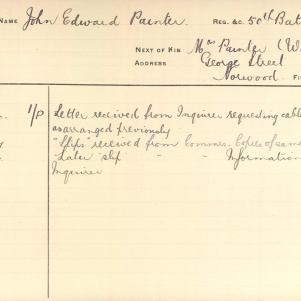 NAME John Edward Painter. REG. &C. 50th Bat
NEXT OF KIN Mrs Painter (W
ADDRESS George Street
Norwood. Fi
1/P Letter received from Inquirer requesting cable
as arranged previously
"Slips" received from Commrs. Copies of same
"Later" slip " " Information
Inquirer